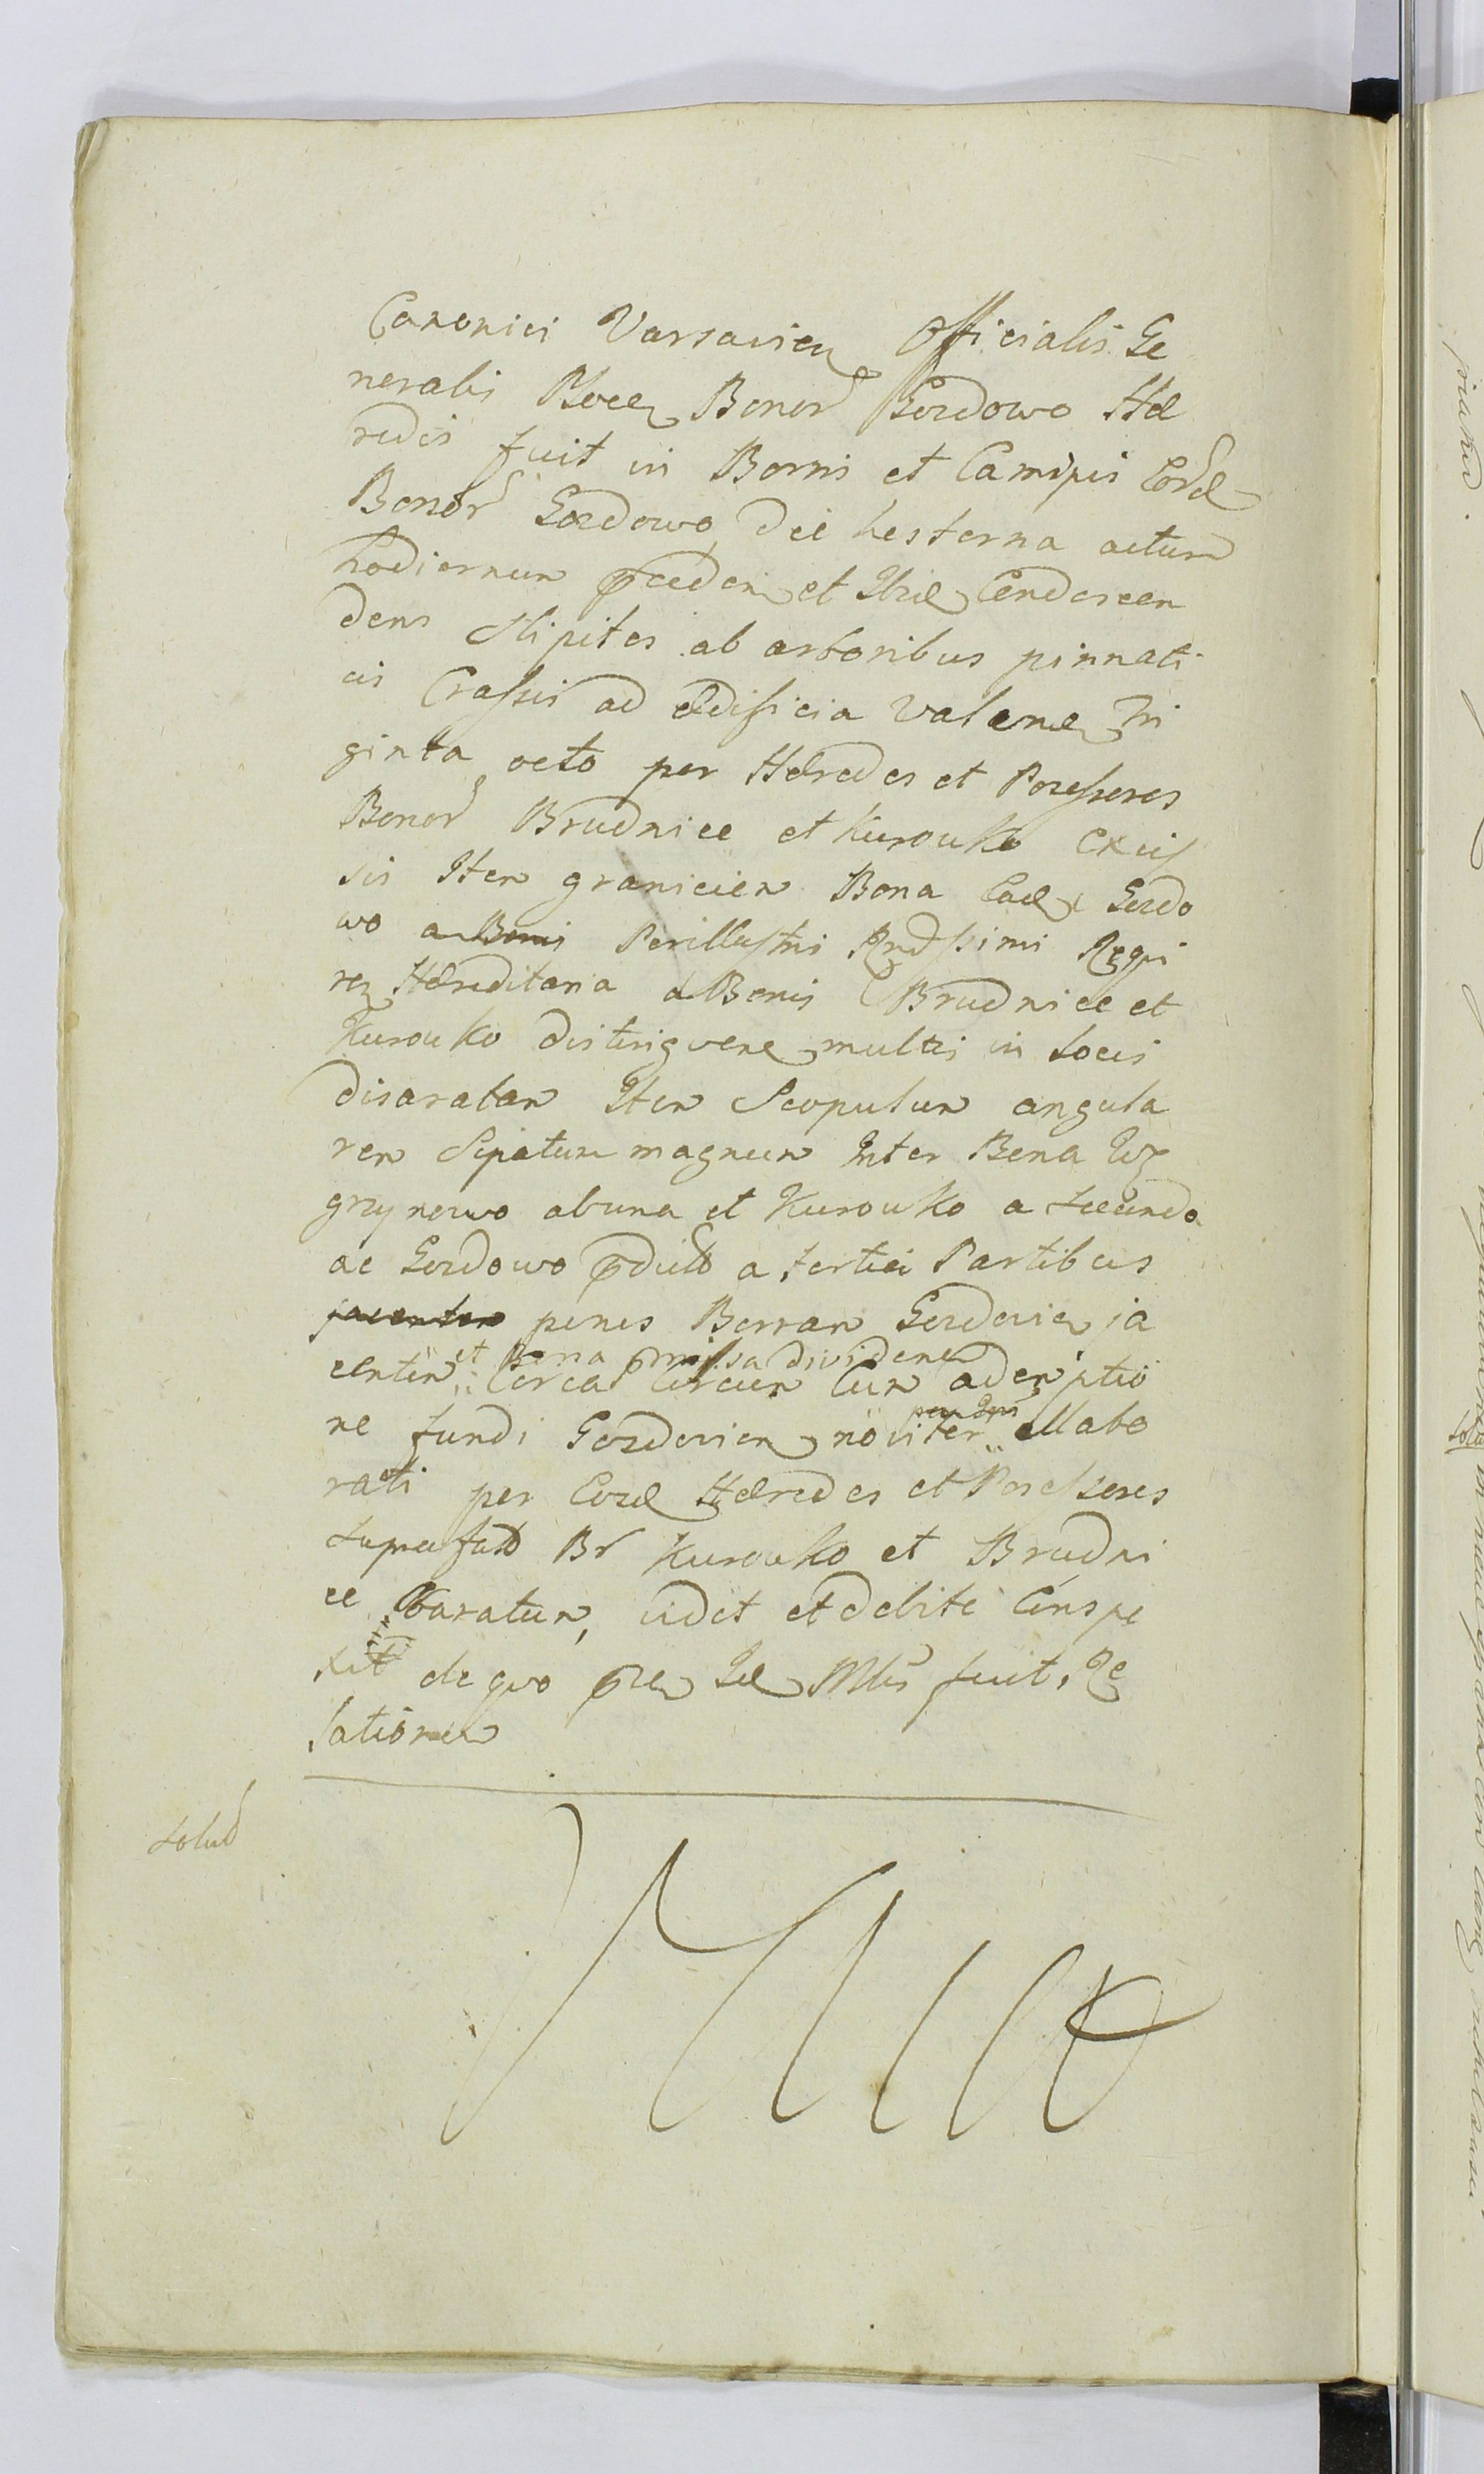 Canonici Varsavien Officialis Ge
neralis Plocen Bonor Gozdowo Hæ
redis fuit in Borris et Campis Eord
Bonor Gozdowo die hesterna actum
hodiernum præceden et Ibid Condescen
dens Stipites ab arboribus pinnati
cis Crassis ad ædificia valens Tri
ginta octo per Hæredes et Possessores
Bonor Brudnice et Kurowko Excis
sis Item granicien Bona Ead Gozdo
wo a Bonis Perillustris Rndssimi Requi
ren Hæreditaria a Bonis Brudnice et
Kurowko distinguere multis in Locis
disaratam Item Scopulum angula
rem Sipatum magnum Inter Bona Wę
grzynowo ab una et Kurowko a secunda
ac Gozdowo a tertia Partibus
jacentem penes Borram Gozdovien ja
et Bona præmissa dividen
centem Circa Circum Cum ademptio
ne fundi Gozdovien noviter ellabo
rati per Eosd Hæredes et Possessores
suprafat Br Kurowko et Brudni
ce Obaratum, vidit et debite Conspe
xit de quo Mlis fuit, Re
lationem
Solut